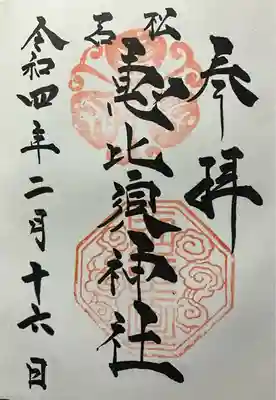 奉拝
松石
恵比須神社
令和四年二月十六日